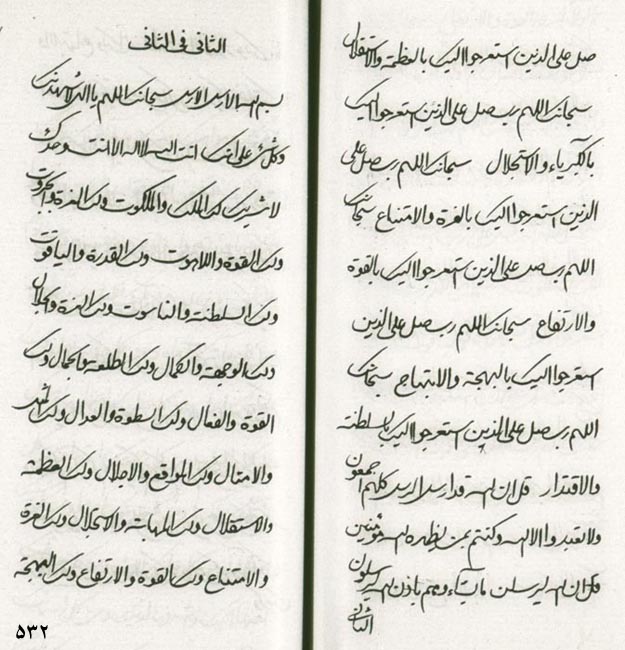 صل علی الذین استعرجوا الیک بالعظمة والاستقلال
سبحانک اللهم رب صل علی الذین استعرجوا الیک
بالکبریاء والاستجلال سبحانک اللهم رب صل علی
الذین استعرجوا الیک بالعزة والامتناع سبحانک
اللهم رب صل علی الذین استعرجوا الیک بالقوة
والارتفاع سبحانک اللهم رب صل علی الذین
استعرجوا الیک بالبهجة والابتهاج سبحانک
اللهم رب صل علی الذین استعرجوا الیک بالسلطنة
والاقتدار قل ان الله قد ارسل الرسل کلهم اجمعون
ولا تعبدوا الا الله وکنتم بمن یظهره الله مؤمنین
قل ان الله لیرسلن ما یشاء وهم باذن الله یرسلون
الثانی فی الثانی
بسم الله الارسل الارسل سبحانک اللهم یا الهی لاشهدنک
وکل شیء علی انک انت الله لا اله الا انت وحدک
لا شریک لک لک الملک والملکوت ولک العزة والجبروت
ولک القوة واللاهوت ولک القدرة والیاقوت
ولک السلطنة والناسوت ولک العزة والجلال
ولک الوجهة والکمال ولک الطلعة والجمال ولک
القوة والفعال ولک السطوة والعدال ولک المثل
والامثال ولک المواقع والاجلال ولک العظمة
والاستقلال ولک المهابة والاستجلال ولک العزة
والامتناع ولک القوة والارتفاع ولک البهجة
۵۳۲